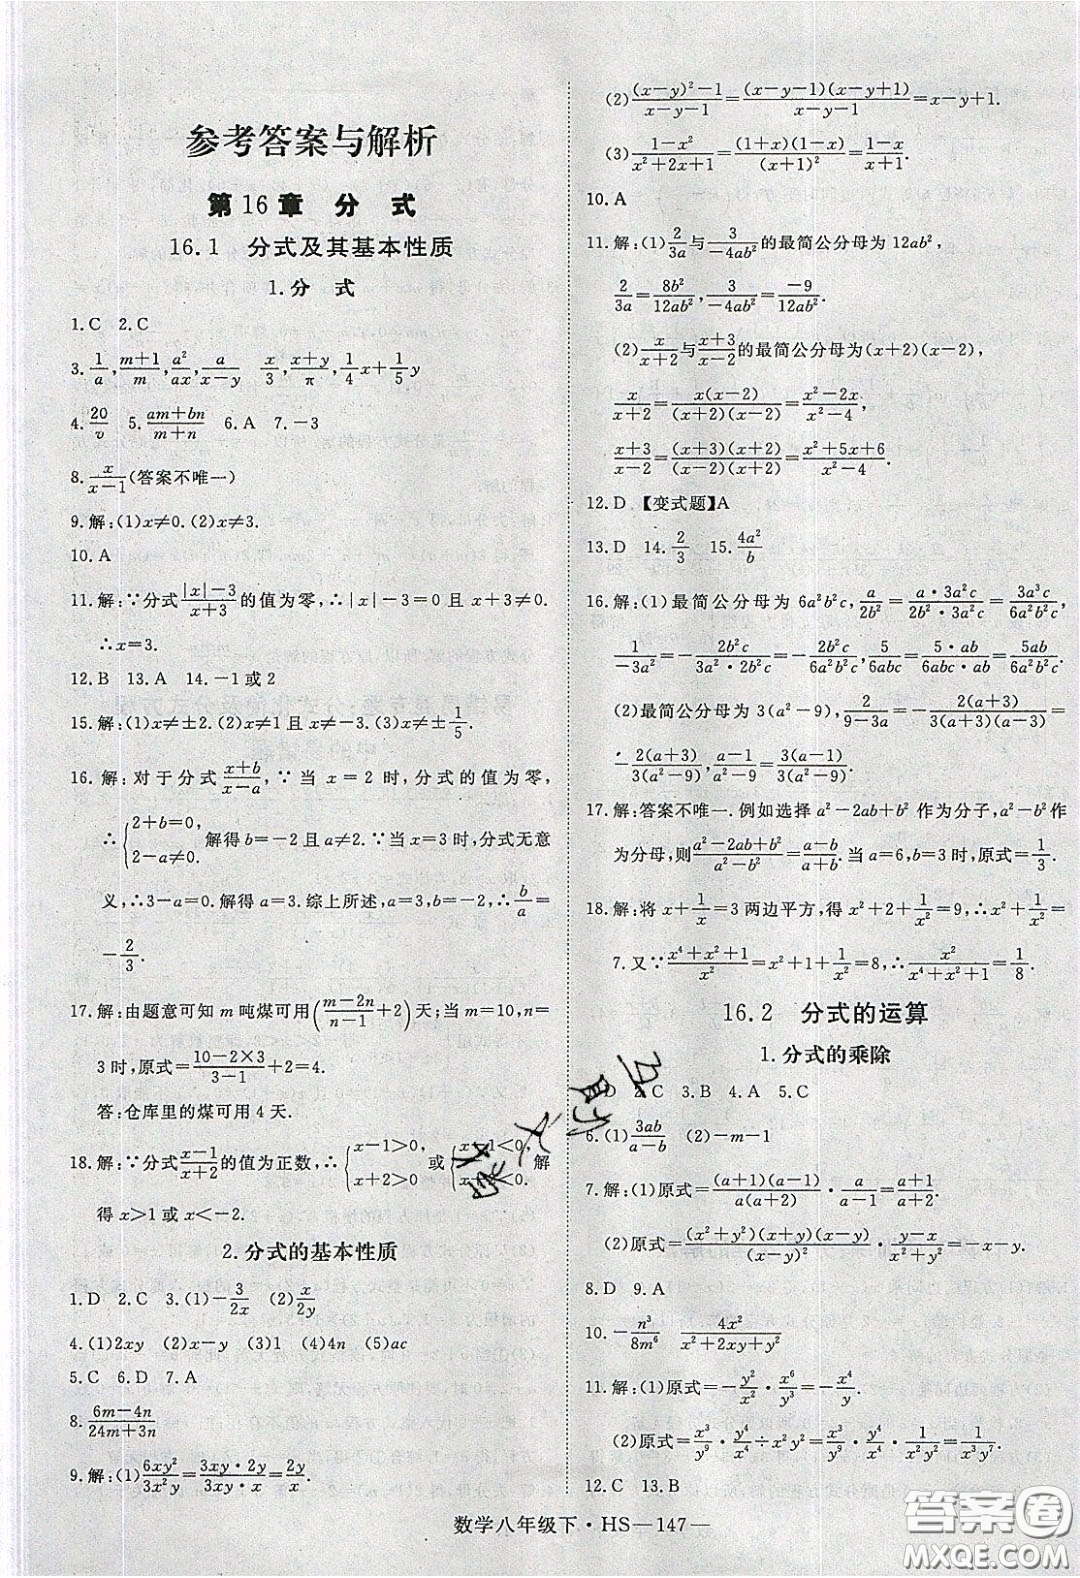 参考答案与解析
第16章 分 式
16.1 分式及其基本性质
1.分 式
1.C 2.C
3.1/a,(m+1)/m,a²/(ax),a/(x−y) x/3,(x+y)/π,1/4x+1/5y
4.20/v 5.(am+bn)/(m+n) 6.A 7.−3
8.x/(x−1)(答案不唯一)
9.解:(1)x≠0.(2)x≠3.
10.A
11.解:∵分式(|x|−3)/(x+3)的值为零,∴|x|−3=0且x+3≠0.
∴x=3.
12.B 13.A 14.−1或2
15.解:(1)x≠±2.(2)x≠0.(3)x≠±1/5.
16.解:对于分式(x+b)/(x−a),∵当x=2时,分式的值为零,
∴{2+b=0, 2−a≠0, 解得b=−2且a≠2.∵当x=3时,分式无意
义,∴3−a=0.解得a=3.综上所述,a=3,b=−2,∴b/a=
−2/3.
17.解:由题意可知m吨煤可用((m−2n)/(n−1)+2)天;当m=10,n=
3时,原式=(10−2×3)/(3−1)+2=4.
答:仓库里的煤可用4天.
18.解:∵分式(x−1)/(x+2)的值为正数,∴{x−1>0, x+2>0 或{x−1<0, x+2<0. 解
得x>1或x<−2.
2.分式的基本性质
1.D 2.C 3.(1)−3/(2x) (2)x/(2y)
4.(1)2xy (2)x−y (3)1 (4)4n (5)ac
5.C 6.D 7.A
8.(6m−4n)/(24m+3n)
9.解:(1)6xy²/(3x²y)=(3xy·2y)/(3xy·x)=2y/x.
(2)((x−y)²−1)/(x−y−1)=((x−y−1)(x−y+1))/(x−y−1)=x−y+1.
(3)(1−x²)/(x²+2x+1)=((1+x)(1−x))/(x+1)²=(1−x)/(x+1).
10.A
11.解:(1)2/(3a)与3/(−4ab²)的最简公分母为12ab²,
2/(3a)=8b²/(12ab²),3/(−4ab²)=−9/(12ab²).
(2)x/(x+2)与(x+3)/(x−2)的最简公分母为(x+2)(x−2),
x/(x+2)=x(x−2)/((x+2)(x−2))=(x²−2x)/(x²−4),
(x+3)/(x−2)=((x+3)(x+2))/((x−2)(x+2))=(x²+5x+6)/(x²−4).
12.D 【变式题】A
13.D 14.2/3 15.4a²/b
16.解:(1)最简公分母为6a²b²c,a/(2b²)=(a·3a²c)/(2b²·3a²c)=3a³c/(6a²b²c),
1/(−3a²)=−2b²c/(3a²·2b²c)=−2b²c/(6a²b²c),5/(6abc)=(5·ab)/(6abc·ab)=5ab/(6a²b²c).
(2)最简公分母为3(a²−9),2/(9−3a)=−2(a+3)/(3(a+3)(a−3))=
−2(a+3)/(3(a²−9)),(a−1)/(a²−9)=3(a−1)/(3(a²−9)).
17.解:答案不唯一.例如选择a²−2ab+b²作为分子,a²−b²作
为分母,则(a²−2ab+b²)/(a²−b²)=(a−b)/(a+b).当a=6,b=3时,原式=1/3.
18.解:将x+1/x=3两边平方,得x²+2+1/x²=9,∴x²+1/x²=
7.又∵(x⁴+x²+1)/x²=x²+1+1/x²=8,∴x²/(x⁴+x²+1)=1/8.
16.2 分式的运算
1.分式的乘除
1.D 2.C 3.B 4.A 5.C
6.(1)3ab/(a−b) (2)−m−1
7.解:(1)原式=((a+1)(a−1))/(a(a+2))·a/(a−1)=(a+1)/(a+2).
(2)原式=((x²+y²)(x+y)(x−y))/(x−y)²·(y−x)/(x²+y²)=−x−y.
8.D 9.A
10.−n³/(8m⁶) 4x²/(x²+2xy+y²)
11.解:(1)原式=−y²/x²·x⁶/y³=−x⁴/y.
(2)原式=x³/y⁹·y⁴/x²÷x²y²=x/y⁵·1/(x²y²)=1/(x³y⁷).
12.C 13.B
数学八年级下·HS—147—
答案圈
MXQE.COM